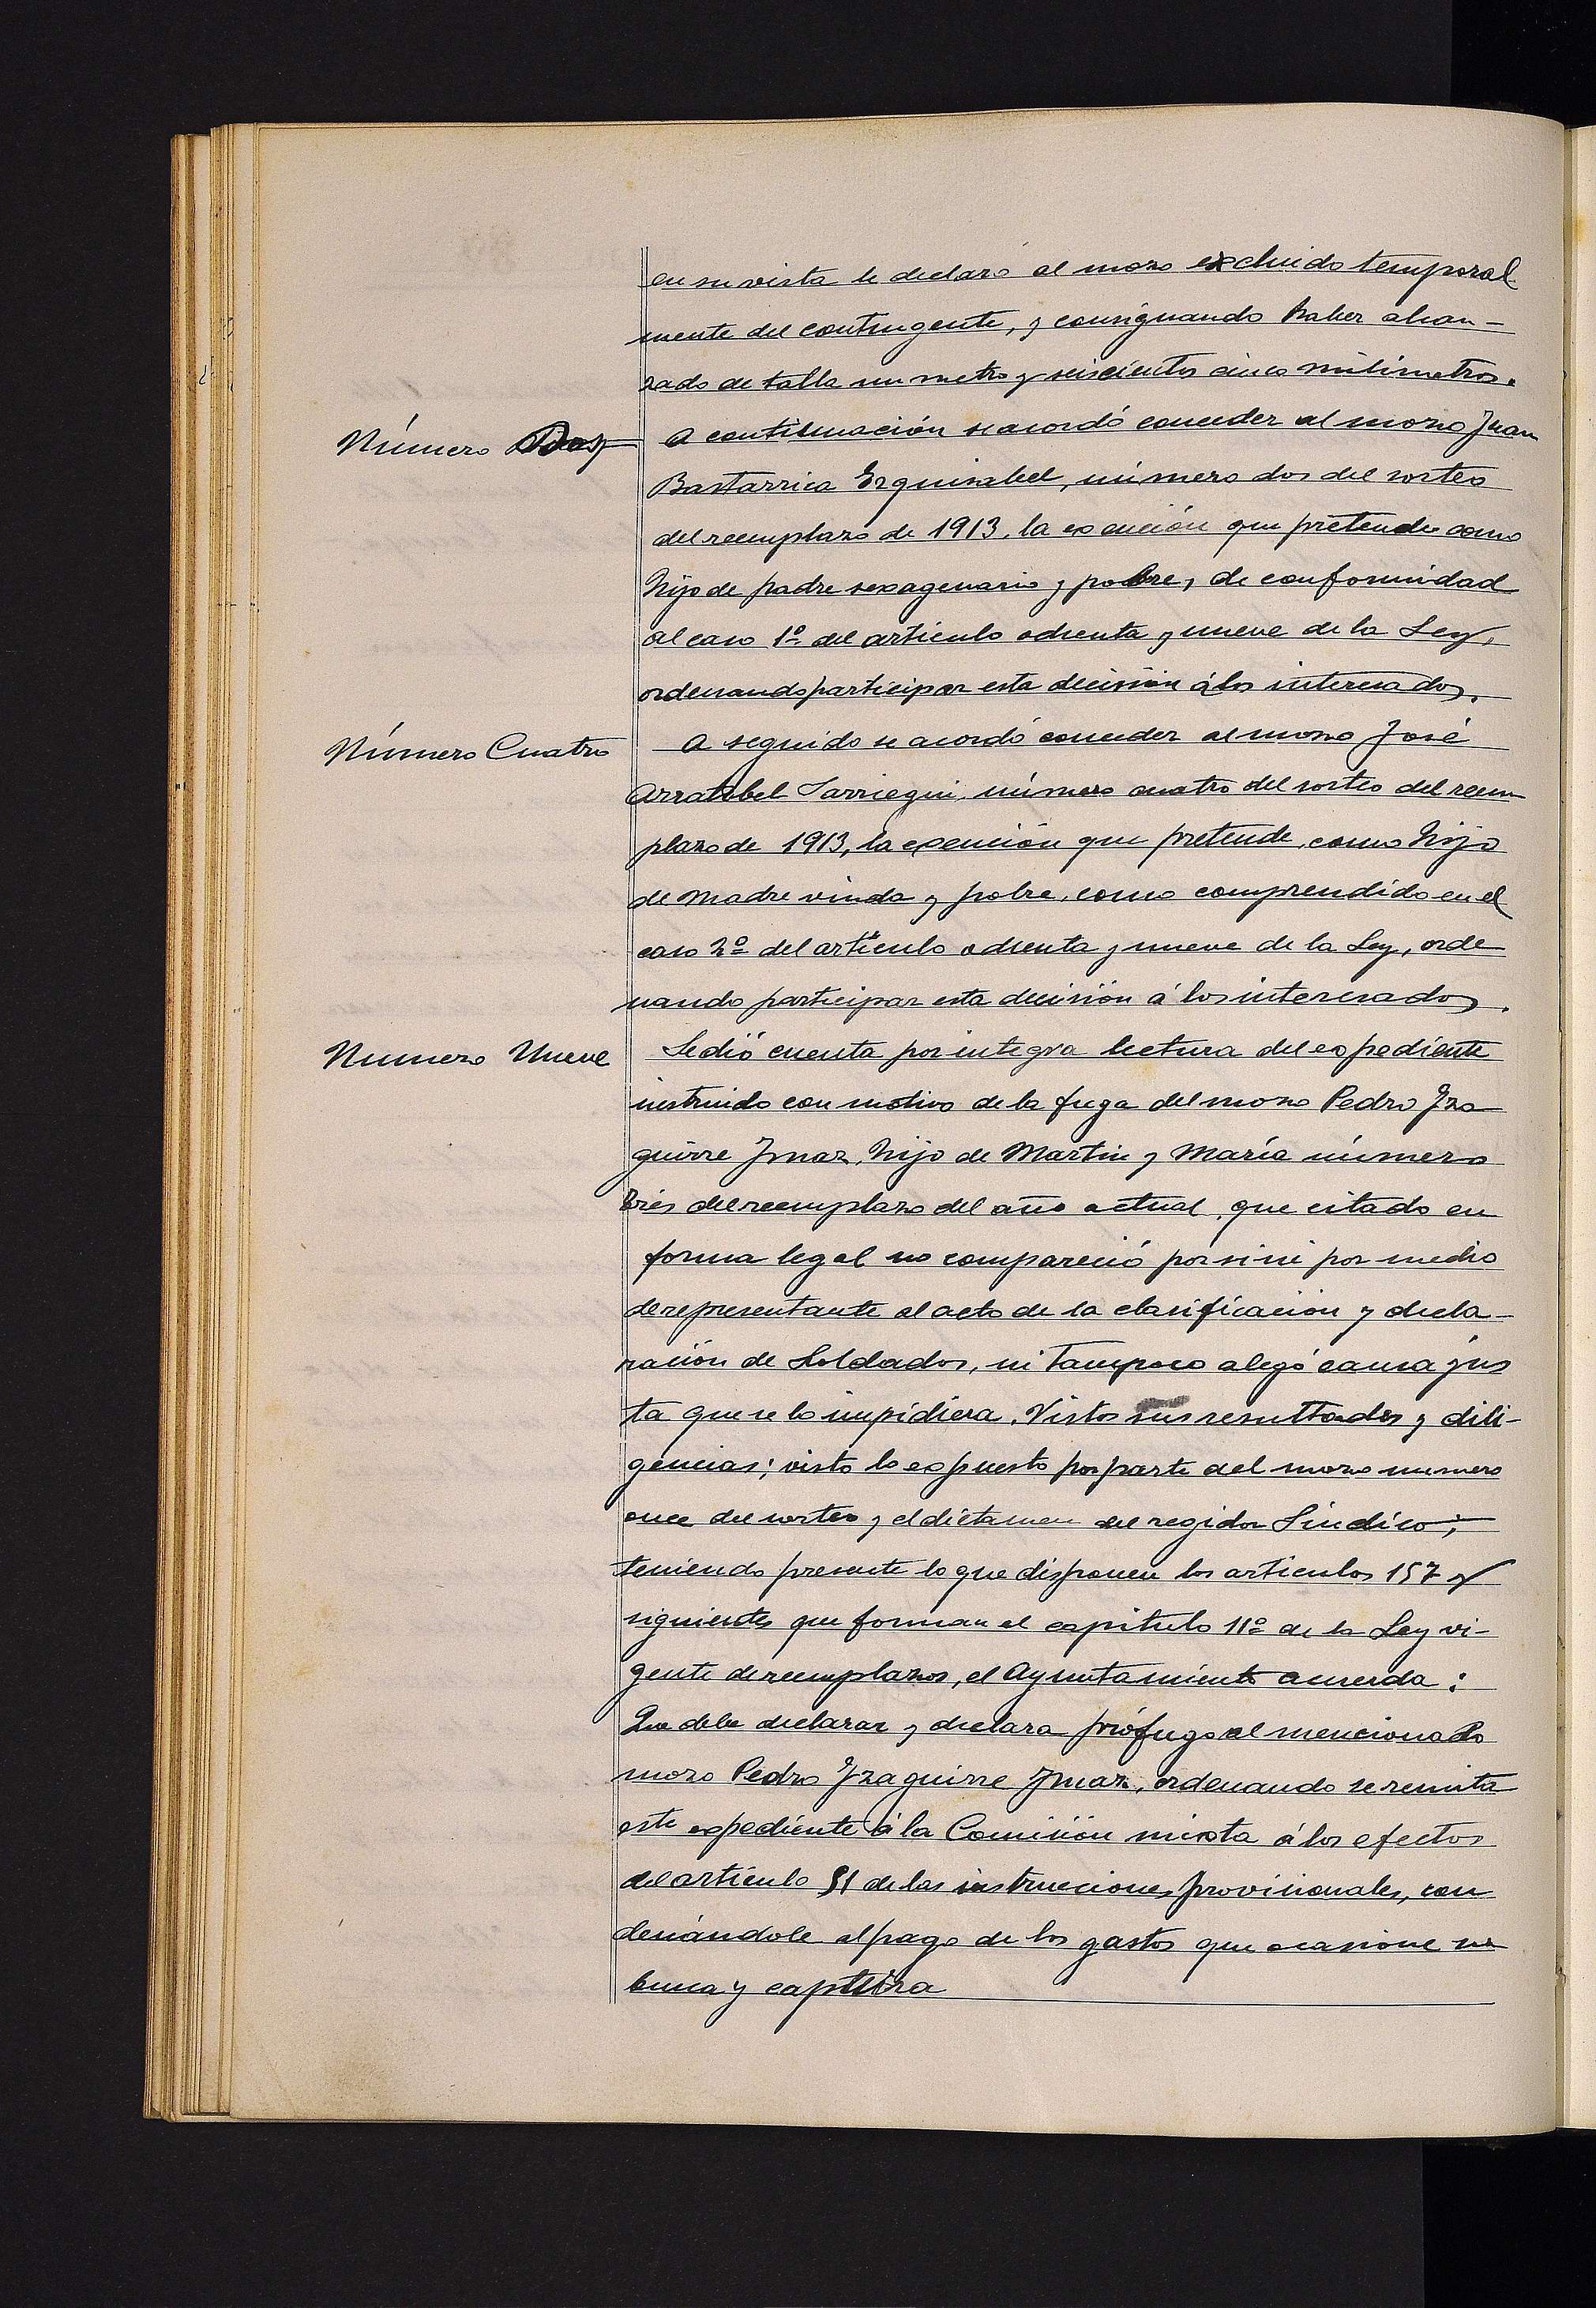 en su vista le declaró al mozo excluido temporal
mente del contingente, y consignando haber alcan-
zado de talla un metro y seiscientos cinco milimetros.
Número Dos
A continuación se acordó conceder al mozo Juan
Bastarrica Erquisabel, número dos del sorteo
del reemplazo de 1913, la exención que pretende como
hijo de padre sexagenario y pobre, de conformidad
al caso 1º del artículo ochenta y nueve de la Ley,
ordenando participar esta decisión á los interesados.
Número Cuatro
A seguido se acordó conceder al mozo José
Arratibel Sarriegui, número cuatro del sorteo del reem
plazo de 1913, la exención que pretende, como hijo
de madre viuda y pobre, como comprendido en el
caso 2º del artículo ochenta y nueve de la Ley, orde
nando participar esta decisión á los interesados.
Numero Nueve
Se dió cuenta por integra lectura del expediente
instruido con motivo de la fuga del mozo Pedro Yza
guirre Ymaz, hijo de Martin y María número
tres del reemplazo del año actual, que citado en
forma legal no compareció por si ni por medio
de representante al acto de la clasificación y decla-
ración de Soldados, ni tampoco alegó causa jus
ta que se lo impidiera. Vistos sus resultados y dili-
gencias; visto lo expuesto por parte del mozo numero
once del sorteo y el dictamen del regidor Sindico;
teniendo presente lo que disponen los articulos 157 y
siguientes que forman el capitulo 11º de la Ley vi-
gente de reemplazos, el Ayuntamiento acuerda:
Que debe declarar y declara prófugo al mencionado
mozo Pedro Yzaguirre Ymaz, ordenando se remita
este expediente á la Comisión mixta á los efectos
del artículo 51 de las instrucciones provisionales, con
denándole al pago de los gastos que ocasione su
busca y captura